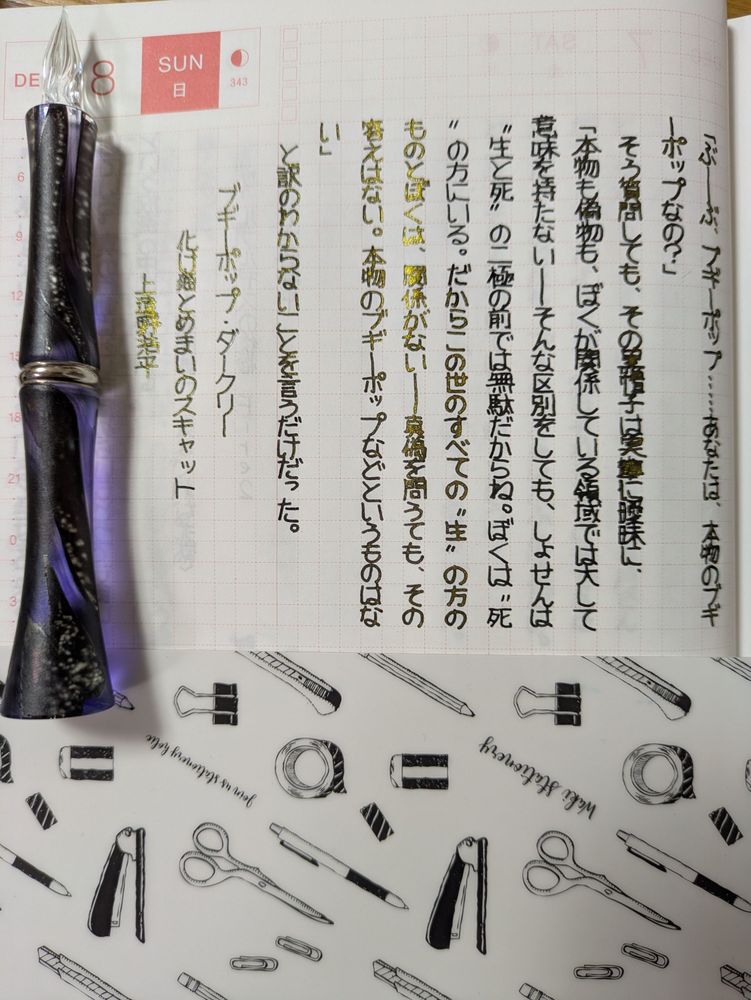 8
SUN
日
343
「ぶ――ぶ、ブギーポップ……あなたは、本物のブギ
ーポップなの？」
そう質問しても、その黒帽子は に曖昧に、
「本物も偽物も、ぼくが関係している領域では大して
意味を持たない――そんな区別をしても、しょせんは
〝生と死〟の二極の前では無駄だからね。ぼくは〝死
〟の方にいる。だからこの世のすべての〝生〟の方の
ものとぼくは、関係がない――真偽を問うても、その
答えはない。本物のブギーポップなどというものはな
い」
と訳のわからないことを言うだけだった。
ブギーポップ・ダークリー
化け猫とめまいのスキャット
上遠野浩平
6
9
12
18
21
0
3
Join us stationery holic
Waki stationery